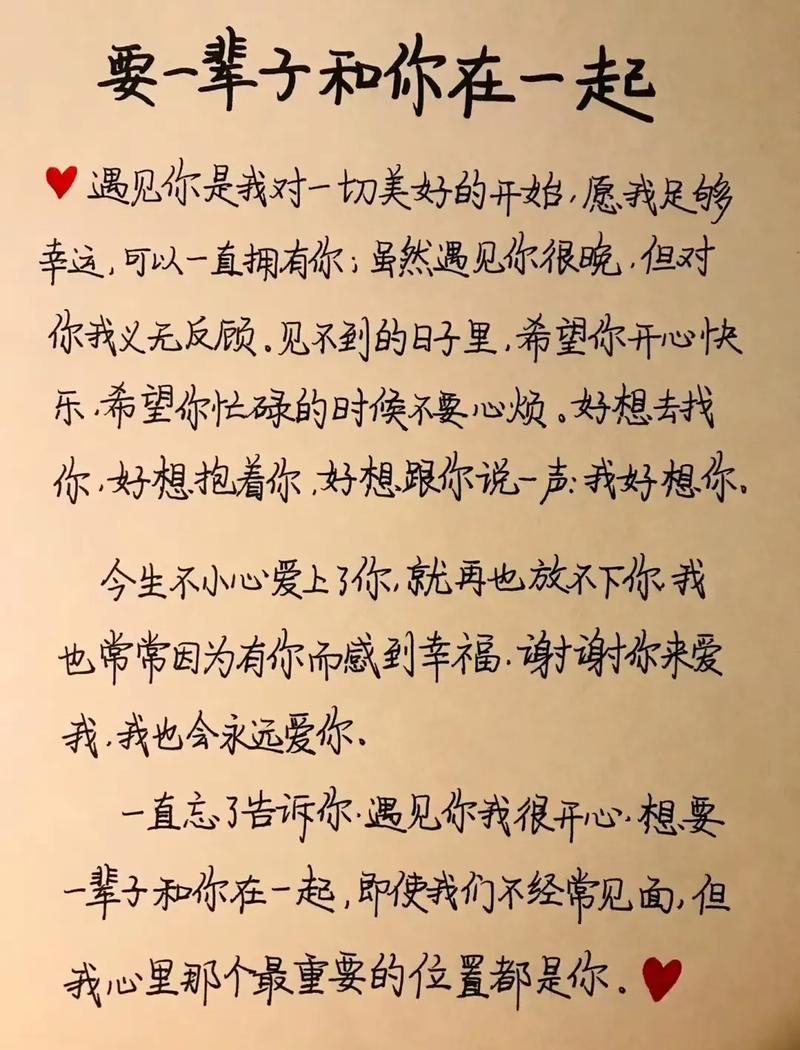 要一辈子和你在一起
♥遇见你是我对一切美好的开始,愿我足够
幸运,可以一直拥有你;虽然遇见你很晚,但对
你我义无反顾。见不到的日子里,希望你开心快
乐,希望你忙碌的时候不要心烦。好想去找
你,好想抱着你,好想跟你说一声:我好想你。
今生不小心爱上了你,就再也放不下你,我
也常常因为有你而感到幸福.谢谢你来爱
我,我也会永远爱你.
一直忘了告诉你.遇见你我很开心.想要
一辈子和你在一起,即使我们不经常见面,但
我心里那个最重要的位置都是你。♥